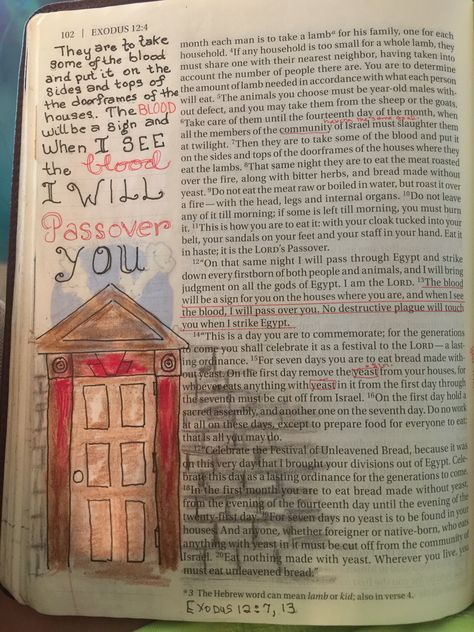 102 | EXODUS 12:4
They are to take
some of the blood
and put it on the
sides and tops of
the doorframes of the
houses.. The BLOOD
will be a sign and
when I SEE
the blood
I WILL
Passover
YOU
month each man is to take a lambᵃ for his family, one for each
household. ⁴If any household is too small for a whole lamb, they
must share one with their nearest neighbor, having taken into
account the number of people there are. You are to determine
the amount of lamb needed in accordance with what each person
will eat. ⁵The animals you choose must be year-old males with-
out defect, and you may take them from the sheep or the goats.
⁶Take care of them until the fourteenth day of the month, when
all the members of the community of Israel must slaughter them
at twilight. ⁷Then they are to take some of the blood and put it
on the sides and tops of the doorframes of the houses where they
eat the lambs. ⁸That same night they are to eat the meat roasted
over the fire, along with bitter herbs, and bread made without
yeast. ⁹Do not eat the meat raw or boiled in water, but roast it over
a fire—with the head, legs and internal organs. ¹⁰Do not leave
any of it till morning; if some is left till morning, you must burn
it. ¹¹This is how you are to eat it: with your cloak tucked into your
belt, your sandals on your feet and your staff in your hand. Eat it
in haste; it is the LORD's Passover.
¹²"On that same night I will pass through Egypt and strike
down every firstborn of both people and animals, and I will bring
judgment on all the gods of Egypt. I am the LORD. ¹³The blood
will be a sign for you on the houses where you are, and when I see
the blood, I will pass over you. No destructive plague will touch
you when I strike Egypt.
¹⁴"This is a day you are to commemorate; for the generations
to come you shall celebrate it as a festival to the LORD—a last-
ing ordinance. ¹⁵For seven days you are to eat bread made with-
out yeast. On the first day remove the yeast from your houses, for
whoever eats anything with yeast in it from the first day through
the seventh must be cut off from Israel. ¹⁶On the first day hold a
sacred assembly, and another one on the seventh day. Do no work
at all on these days, except to prepare food for everyone to eat;
that is all you may do.
¹⁷"Celebrate the Festival of Unleavened Bread, because it was
on this very day that I brought your divisions out of Egypt. Cele-
brate this day as a lasting ordinance for the generations to come.
¹⁸In the first month you are to eat bread made without yeast,
from the evening of the fourteenth day until the evening of the
twenty-first day. ¹⁹For seven days no yeast is to be found in your
houses. And anyone, whether foreigner or native-born, who eats
anything with yeast in it must be cut off from the community of
Israel. ²⁰Eat nothing made with yeast. Wherever you live, you
must eat unleavened bread."
ᵃ3 The Hebrew word can mean lamb or kid; also in verse 4.
EXODUS 12:7, 13